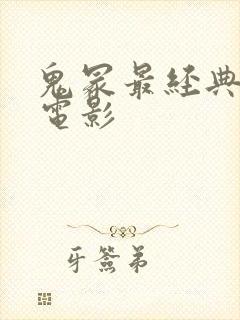 鬼冢最經典
電影
牙簽弟